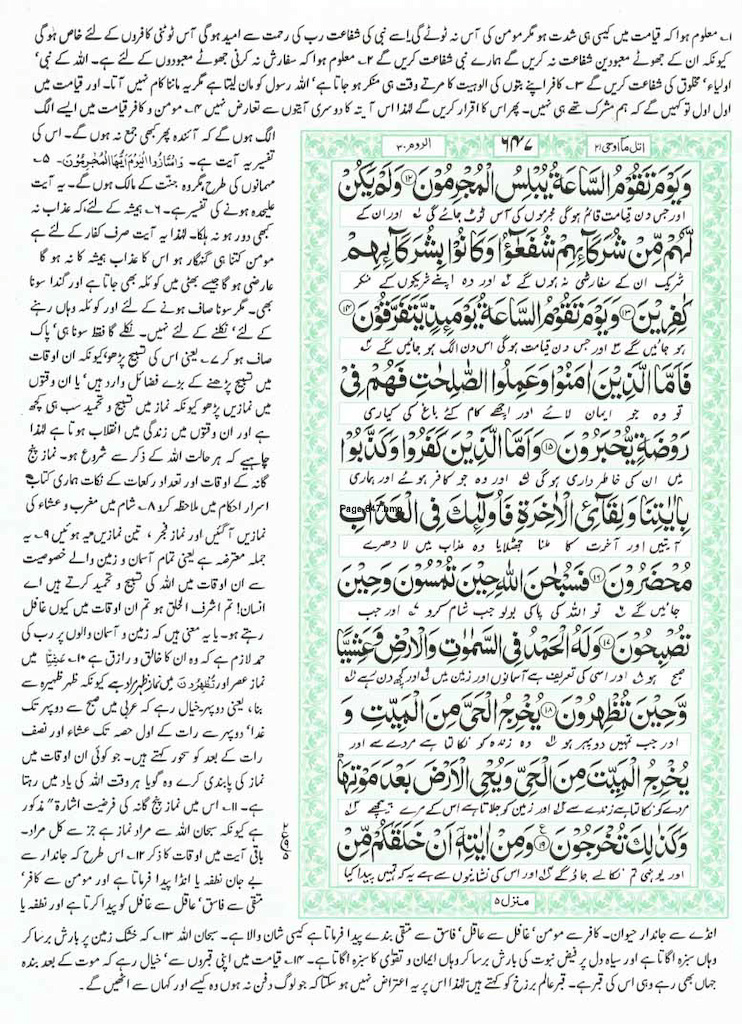 ۱۔ معلوم ہوا کہ قیامت میں کیسی ہی شدت ہو مگر مومن کی آس نہ ٹوٹے گی اسے نبی کی شفاعت رب کی رحمت سے امید ہوگی آس ٹوٹنی کافروں کے لئے خاص ہوگی
کیونکہ ان کے جھوٹے معبودین شفاعت نہ کریں گے ہمارے نبی شفاعت کریں گے ۲۔ معلوم ہوا کہ سفارش نہ کرنی جھوٹے معبودوں کے لئے ہے۔ اللہ کے نبی'
اولیاء' مخلوق کی شفاعت کریں گے ۳۔ کافر اپنے بتوں کی الوہیت کا مرتے وقت ہی منکر ہو جاتا ہے' اللہ رسول کو مان لیتا ہے مگر یہ ماننا کام نہیں آتا۔ اور قیامت میں
اول اول تو کہیں گے کہ ہم مشرک تھے ہی نہیں۔ پھر اس کا اقرار کریں گے لہٰذا اس آیت کا دوسری آیتوں سے تعارض نہیں ۴۔ مومن و کافر قیامت میں ایسے الگ
اتل مآ اوحی ۲۱
۶۴۷
الروم ۳۰
وَيَوْمَ تَقُوْمُ السَّاعَةُ يُبْلِسُ الْمُجْرِمُوْنَ ﴿۱۲﴾ وَلَمْ يَكُنْ
اور جس دن قیامت قائم ہوگی مجرموں کی آس ٹوٹ جائے گی ۱ اور ان کے
لَّهُمْ مِّنْ شُرَكَآئِهِمْ شُفَعٰٓؤُا وَكَانُوْا بِشُرَكَآئِهِمْ
شریک ان کے سفارشی نہ ہوں گے ۲ اور وہ اپنے شریکوں کے منکر
كٰفِرِيْنَ ﴿۱۳﴾ وَيَوْمَ تَقُوْمُ السَّاعَةُ يَوْمَئِذٍ يَّتَفَرَّقُوْنَ ﴿۱۴﴾
ہو جائیں گے ۳ اور جس دن قیامت ہوگی اس دن الگ ہو جائیں گے ۴
فَاَمَّا الَّذِيْنَ اٰمَنُوْا وَعَمِلُوا الصّٰلِحٰتِ فَهُمْ فِيْ
تو وہ جو ایمان لائے اور اچھے کام کئے باغ کی کیاری
رَوْضَةٍ يُّحْبَرُوْنَ ﴿۱۵﴾ وَاَمَّا الَّذِيْنَ كَفَرُوْا وَكَذَّبُوْا
میں ان کی خاطر داری ہوگی ۵ اور وہ جو کافر ہوئے اور ہماری
بِاٰيٰتِنَا وَلِقَآئِ الْاٰخِرَةِ فَاُولٰٓئِكَ فِي الْعَذَابِ
Page 647.bmp
آیتیں اور آخرت کا ملنا جھٹلایا وہ عذاب میں لا دھرے
مُحْضَرُوْنَ ﴿۱۶﴾ فَسُبْحٰنَ اللّٰهِ حِيْنَ تُمْسُوْنَ وَحِيْنَ
جائیں گے ۶ تو اللہ کی پاکی بولو جب شام کرو ۷ اور جب
تُصْبِحُوْنَ ﴿۱۷﴾ وَلَهُ الْحَمْدُ فِي السَّمٰوٰتِ وَالْاَرْضِ وَعَشِيًّا
صبح ہو ۸ اور اسی کی تعریف ہے آسمانوں اور زمین میں ۹ اور کچھ دن رہے ۱۰
وَّحِيْنَ تُظْهِرُوْنَ ﴿۱۸﴾ يُخْرِجُ الْحَيَّ مِنَ الْمَيِّتِ وَ
اور جب تمہیں دوپہر ہو ۱۱ وہ زندہ کو نکالتا ہے مردے سے اور
يُخْرِجُ الْمَيِّتَ مِنَ الْحَيِّ وَيُحْيِ الْاَرْضَ بَعْدَ مَوْتِهَا
مردے کو نکالتا ہے زندے سے ۱۲ اور زمین کو جلاتا ہے اس کے مرے پیچھے ۱۳
وَكَذٰلِكَ تُخْرَجُوْنَ ﴿۱۹﴾ وَمِنْ اٰيٰتِهٖٓ اَنْ خَلَقَكُمْ مِّنْ
اور یونہی تم نکالے جاؤ گے ۱۴ اور اس کی نشانیوں سے ہے یہ کہ تمہیں پیدا کیا
منزل ۵
الگ ہوں گے کہ آئندہ پھر کبھی جمع نہ ہوں گے۔ اس کی
تفسیر یہ آیت ہے۔ وَامْتَازُوا الْيَوْمَ اَيُّهَا الْمُجْرِمُوْنَ۔ ۵۔
مہمانوں کی طرح مگر وہ جنت کے مالک ہوں گے۔ یہ آیت
علیحدہ ہونے کی تفسیر ہے۔ ۶۔ ہمیشہ کے لئے، کہ عذاب نہ
کبھی دور ہو نہ ہلکا۔ لہٰذا یہ آیت صرف کفار کے لئے ہے
مومن کتنا ہی گنہگار ہو اس کا عذاب ہمیشہ کا نہ ہو گا
عارضی ہو گا جیسے بھٹی میں کوئلہ بھی جاتا ہے اور گندا سونا
بھی۔ مگر سونا صاف ہونے کے لئے اور کوئلہ وہاں رہنے
کے لئے' نکلنے کے لئے نہیں۔ نکلے گا فقط سونا ہی' پاک
صاف ہو کر ۷۔ یعنی اس کی تسبیح پڑھو، کیونکہ ان اوقات
میں تسبیح پڑھنے کے بڑے فضائل وارد ہیں' یا ان وقتوں
میں نمازیں پڑھو کیونکہ نماز میں تسبیح و تحمید سب ہی کچھ
ہے اور ان وقتوں میں زندگی میں انقلاب ہوتا ہے لہٰذا
چاہیے کہ ہر حالت اللہ کے ذکر سے شروع ہو۔ نماز پنج
گانہ کے اوقات اور تعداد رکعات کے نکات ہماری کتاب
اسرار احکام میں ملاحظہ کرو ۸۔ شام میں مغرب و عشاء کی
نمازیں آ گئیں اور نماز فجر، تین نمازیں یہ ہوئیں ۹۔ یہ
جملہ معترضہ ہے یعنی تمام آسمان و زمین والے خصوصیت
سے ان اوقات میں اللہ کی تسبیح و تحمید کرتے ہیں اے
انسان! تم اشرف الخلق ہو تم ان اوقات میں کیوں غافل
رہتے ہو۔ یا یہ معنی ہیں کہ زمین و آسمان والوں پر رب کی
حمد لازم ہے کہ وہ ان کا خالق و رازق ہے ۱۰۔ عَشِيًّا میں
نماز عصر اور تُظْهِرُوْنَ میں نماز ظہر مراد ہے کیونکہ ظہر ظہیرہ سے
بنا، یعنی دوپہر۔ خیال رہے کہ عربی میں صبح سے دوپہر تک
غدا' دوپہر سے رات کے اول حصہ تک عشاء اور نصف
رات کے بعد کو سحور کہتے ہیں۔ جو کوئی ان اوقات میں
نماز کی پابندی کرے وہ گویا ہر وقت اللہ کی یاد میں رہتا
ہے۔ ۱۱۔ اس میں نماز پنج گانہ کی فرضیت اشارۃً مذکور
ہے کیونکہ سبحان اللہ سے مراد نماز ہے جز سے کل مراد۔
باقی آیت میں اوقات کا ذکر ۱۲۔ اس طرح کہ جاندار سے
بے جان نطفہ یا انڈا پیدا فرماتا ہے اور مومن سے کافر'
متقی سے فاسق' عاقل سے غافل کو پیدا کرتا ہے اور نطفہ یا
انڈے سے جاندار حیوان۔ کافر سے مومن' غافل سے عاقل' فاسق سے متقی بندے پیدا فرماتا ہے کیسی شان والا ہے۔ سبحان اللہ ۱۳۔ کہ خشک زمین پر بارش برسا کر
وہاں سبزہ اگاتا ہے اور سیاہ دل پر فیض نبوت کی بارش برسا کر وہاں ایمان و تقویٰ کا سبزہ اگاتا ہے۔ ۱۴۔ قیامت میں اپنی قبروں سے' خیال رہے کہ موت کے بعد بندہ
جہاں بھی رہے وہی اس کی قبر ہے۔ قبر عالم برزخ کو کہتے ہیں لہٰذا اس پر یہ اعتراض نہیں ہو سکتا کہ جو لوگ دفن نہ ہوں وہ کیسے اور کہاں سے اٹھیں گے۔